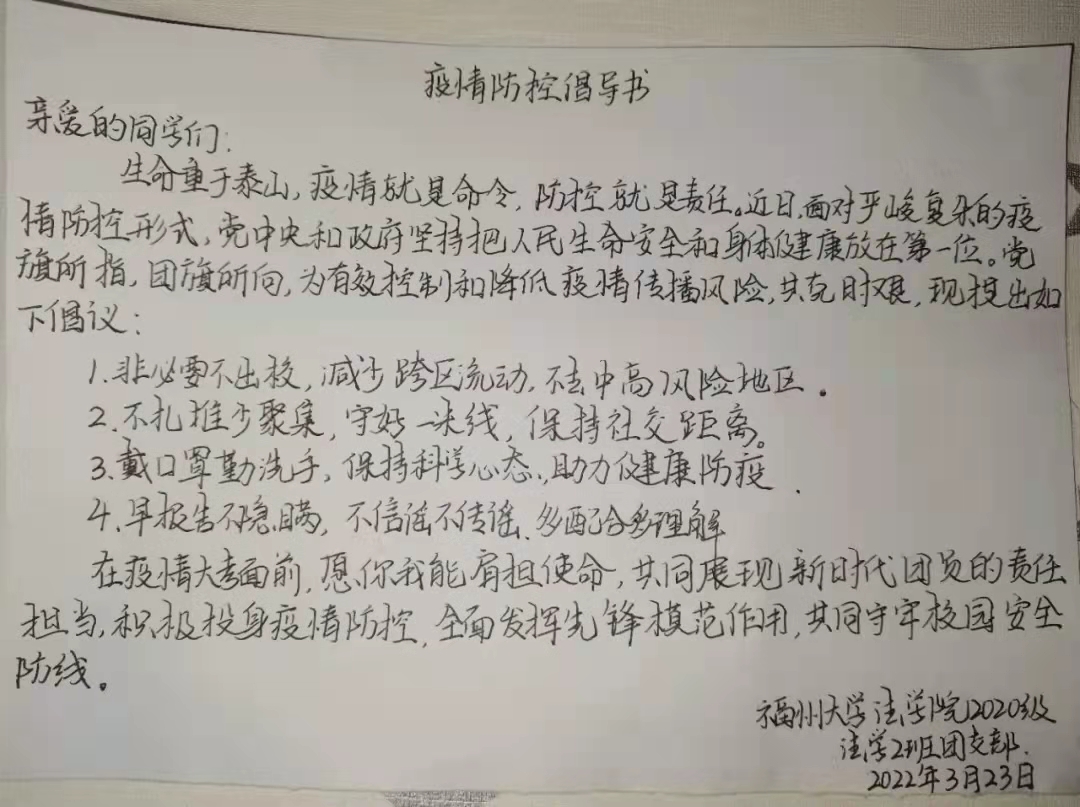 疫情防控倡导书
亲爱的同学们:
生命重于泰山,疫情就是命令,防控就是责任。近日,面对严峻复杂的疫
情防控形式,党中央和政府坚持把人民生命安全和身体健康放在第一位。党
旗所指,团旗所向,为有效控制和降低疫情传播风险,共克时艰,现提出如
下倡议:
1.非必要不出校,减少跨区流动,不去中高风险地区。
2.不扎堆少聚集,守好一米线,保持社交距离。
3.戴口罩勤洗手,保持科学心态,助力健康防疫.
4.早报告不隐瞒,不信谣不传谣、多配合多理解
在疫情大考面前,愿你我能肩担使命,共同展现新时代团员的责任
担当,积极投身疫情防控,全面发挥先锋模范作用,共同守牢校园安全
防线。
福州大学法学院2020级
法学2班团支部.
2022年3月23日